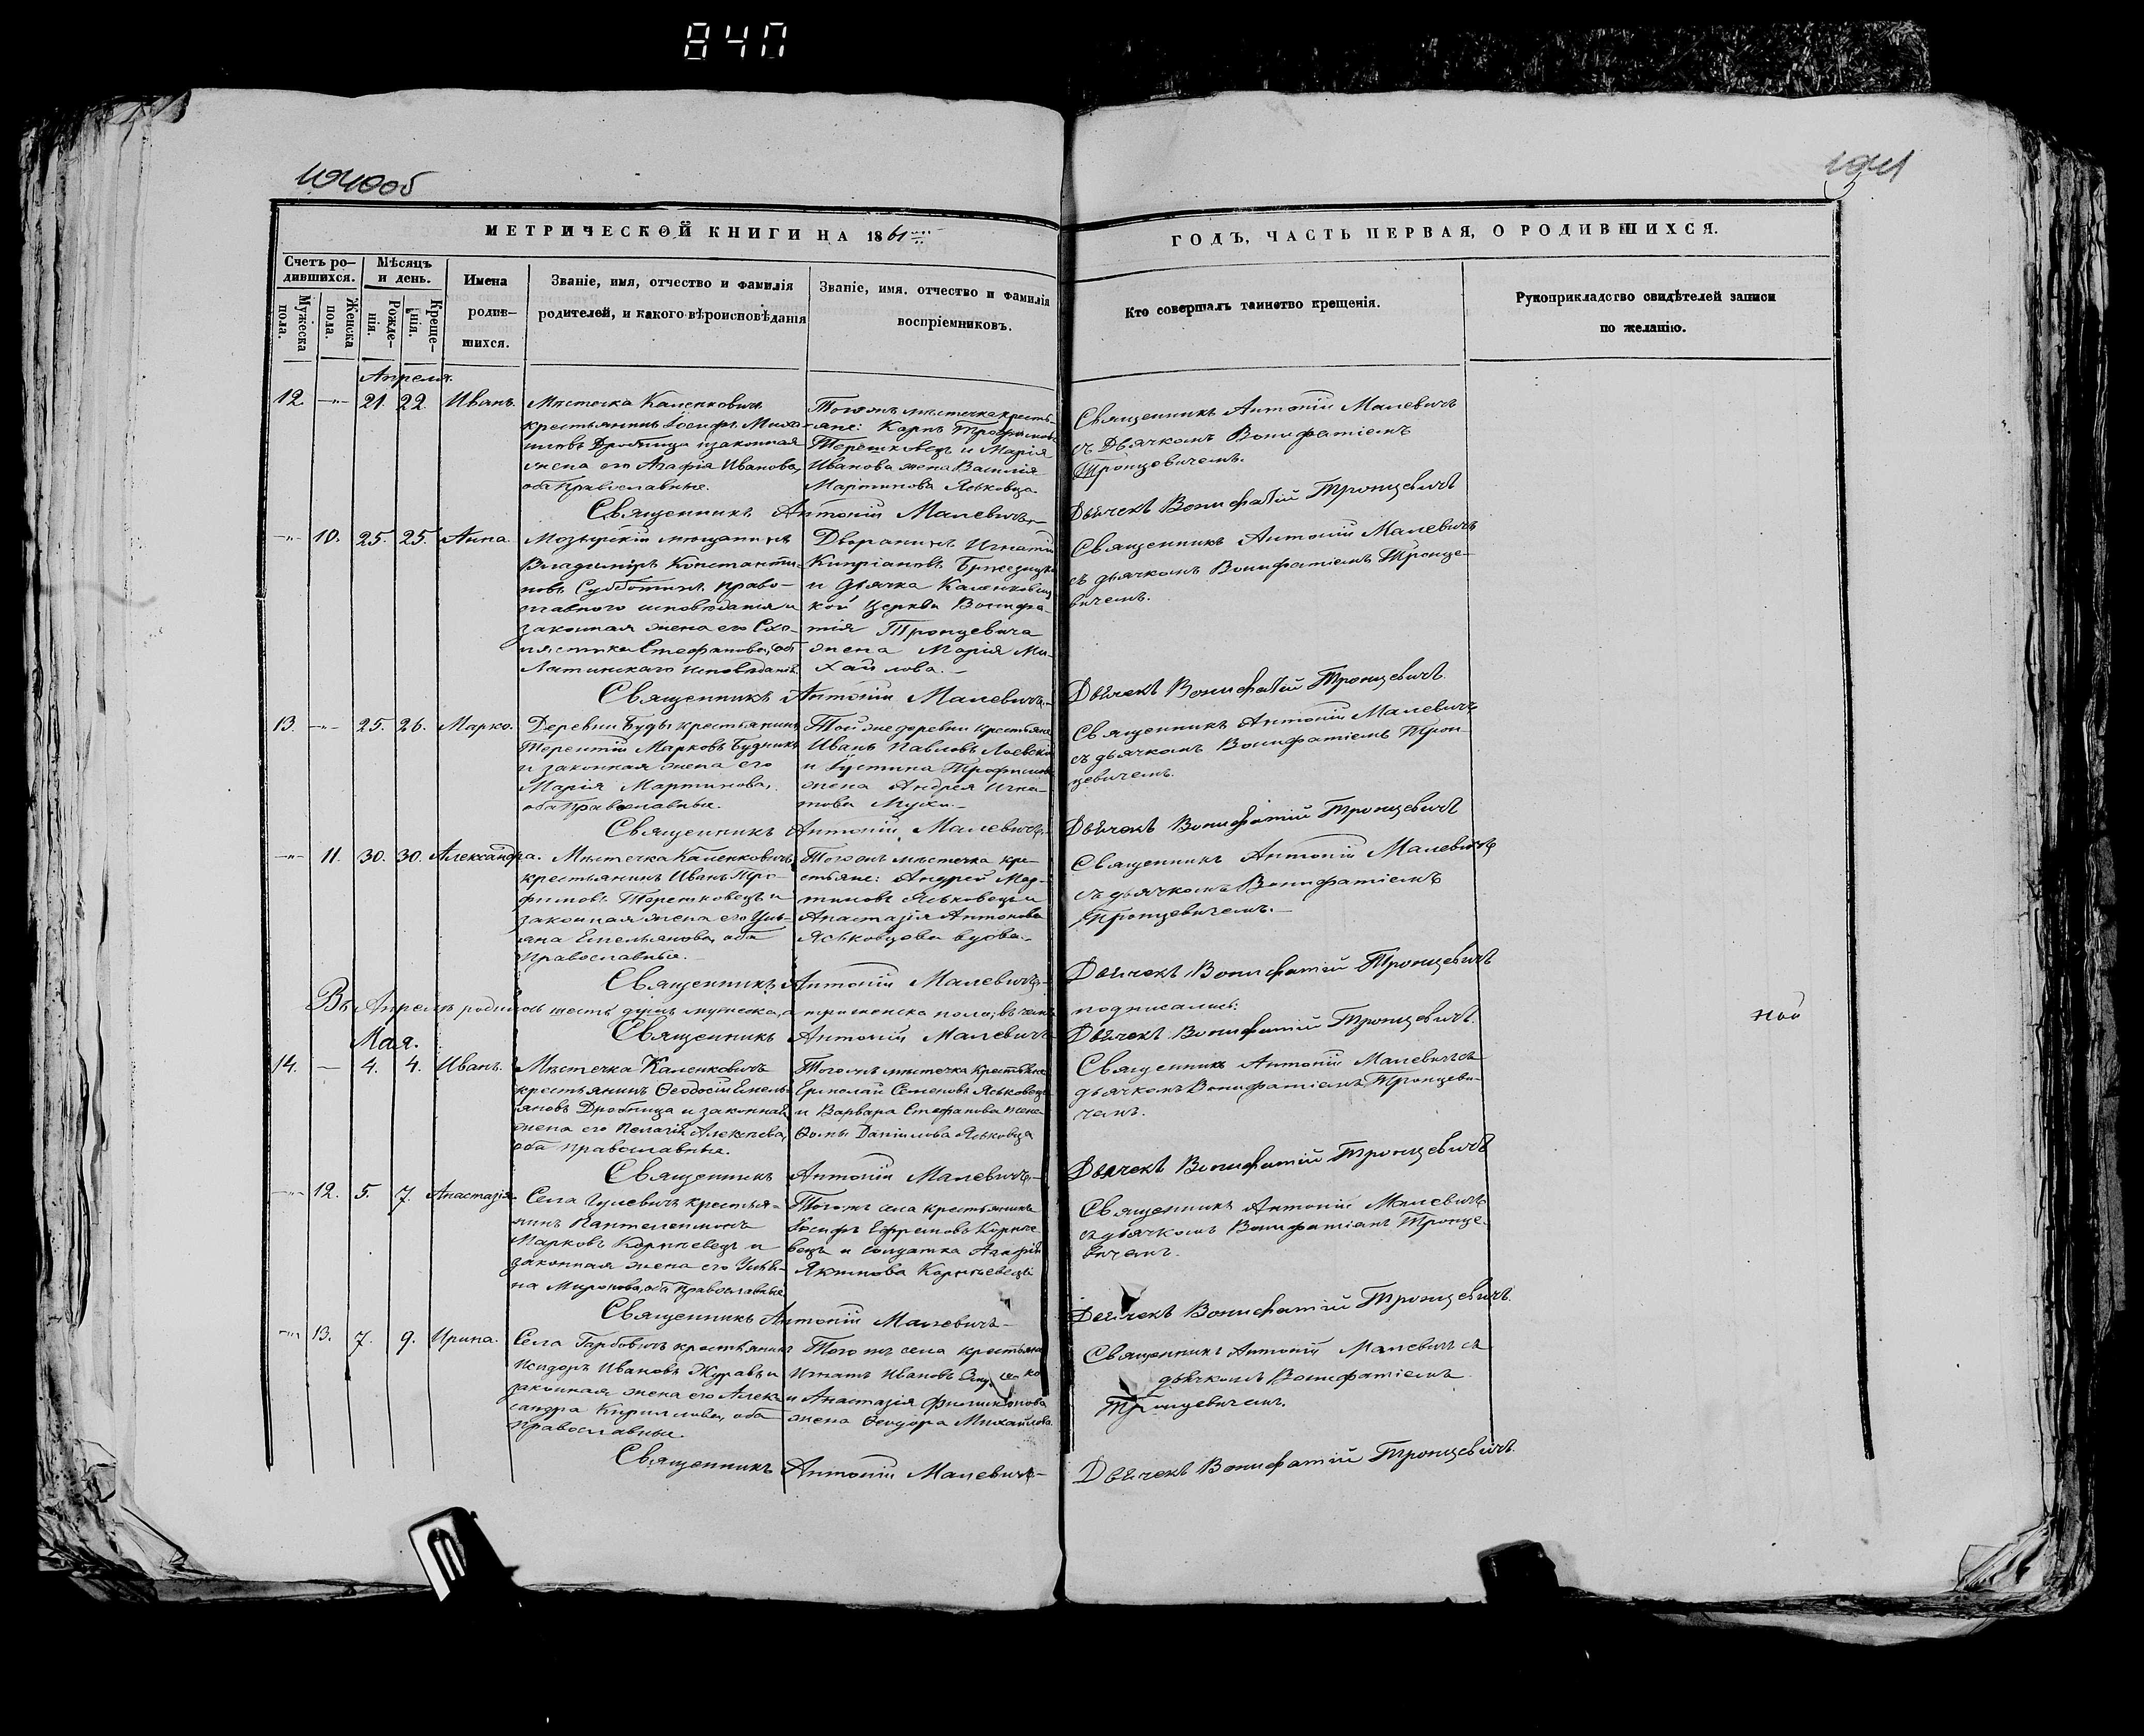 840
1040об
1041
МЕТРИЧЕСКОЙ КНИГИ НА 1861
ГОДЪ, ЧАСТЬ ПЕРВАЯ, О РОДИВШИХСЯ.
Счетъ ро-
дившихся.
Мужеска
пола.
Женска
пола.
Мѣсяцъ
и день.
Рожде-
нія.
Креще-
нія.
Имена
родив-
шихся.
Званіе, имя, отчество и фамилія
родителей, и какого вѣроисповѣданія
Званіе, имя. отчество и фамилія
воспріемниковъ.
Кто совершалъ таинство крещенія.
Рукоприкладство свидѣтелей записи
по желанію.
Апреля.
12. —"— 21. 22. Иванъ.
Мѣстечка Каленковичъ
крестьянинъ Іосифъ Миха-
иловъ Дробница и законная
жена его Агафія Иванова,
оба Православные.
Тогожъ мѣстечка кресть-
яне: Карпъ Трофимовъ
Терешковецъ и Марія
Иванова жена Василія
Мартинова Яськовца.
Священникъ Антоній Малевичъ
съ Дьячкомъ Вонифатіемъ
Тронцевичемъ.
Священникъ Антоній Малевичъ
Дьячекъ Вонифатій Тронцевичъ
—"— 10. 25. 25. Анна.
Мозырскій мещанинъ
Владиміръ Константи-
новъ Субботинъ право-
славного исповѣданія и
законная жена его Схо-
ластика Стефанова,
Латинскаго исповѣданія.
Дворанинъ Игнатій
Кипріановъ
и дьячка Каленкович-
кой Церкви Вонифа-
тія Тронцевича
жена Марія Ми-
хайлова.
Священникъ Антоній Малевичъ
съ дьячкомъ Вонифатіемъ Тронце-
вичемъ.
Священникъ Антоній Малевичъ
Дьячекъ Вонифатій Тронцевичъ.
13. —"— 25. 26. Марко.
Деревни Буды крестьянинъ
Терентій Марковъ Будникъ
и законная жена его
Марія Мартинова,
оба Православные.
Той же деревни крестьяне
Иванъ Павловъ Лоевскій
и Іустина Трофимова
жена Андрея Игна-
това Мухи.
Священникъ Антоній Малевичъ
съ дьячкомъ Вонифатіемъ Трон-
цевичемъ.
Священникъ Антоній Малевичъ
Дьячекъ Вонифатій Тронцевичъ
—"— 11. 30. 30. Александра.
Мѣстечка Каленковичъ
крестьянинъ Иванъ Тро-
фимовъ Терешковецъ и
законная жена его Уль-
яна Емельянова, оба
Православные.
Тогожъ мѣстечка кре-
стьяне: Андрей Мар-
тиновъ Яськовецъ и
Анастазія Антонова
Яськовцова вдова.
Священникъ Антоній Малевичъ
съ дьячкомъ Вонифатіемъ
Тронцевичемъ.
Священникъ Антоній Малевичъ
Дьячекъ Вонифатій Тронцевичъ
Въ Апрелѣ родилось шесть душъ мужеска, а три женска пола; въ чемъ
подписались:
ной
Священникъ Антоній Малевичъ
Дьячекъ Вонифатій Тронцевичъ.
Мая.
14. — 4. 4. Иванъ.
Мѣстечка Каленковичъ
крестьянинъ Ѳеодосій Емель-
яновъ Дробница и законная
жена его Пелагія Алексѣева,
оба православные.
Тогожъ мѣстечка крестьяне
Ермолай Семеновъ Яськовецъ
и Варвара Стефанова жена
Ѳомы Даніилова Яськовца
Священникъ Антоній Малевичъ съ
дьячкомъ Вонифатіемъ Тронцеви-
чемъ.
Священникъ Антоній Малевичъ
Дьячекъ Вонифатій Тронцевичъ
—"— 12. 5. 7. Анастазія.
Села Гулевичъ крестья-
нинъ Пантелеимонъ
Марковъ Корнѣевецъ и
законная жена его Улья-
на Миронова, оба Православные
Тогожъ села крестьянинъ
Іосифъ Ефремовъ Корнѣе-
вецъ и солдатка Агафія
Якимова Корнѣевецъ
Священникъ Антоній Малевичъ
съ дьячкомъ Вонифатіемъ Тронце-
вичемъ.
Священникъ Антоній Малевичъ
Дьячекъ Вонифатій Тронцевичъ.
—"— 13. 7. 9. Ирина.
Села Гарбовичъ крестьянинъ
Исидоръ Ивановъ Журавъ и
законная жена его Алек-
сандра Кириллова, оба
православные.
Того жъ села крестьяне
Игнатъ Ивановъ
и Анастазія Филимонова
жена Ѳеодора Михайлова
Священникъ Антоній Малевичъ съ
дьячкомъ Вонифатіемъ
Тронцевичемъ.
Священникъ Антоній Малевичъ
Дьячекъ Вонифатій Тронцевичъ.